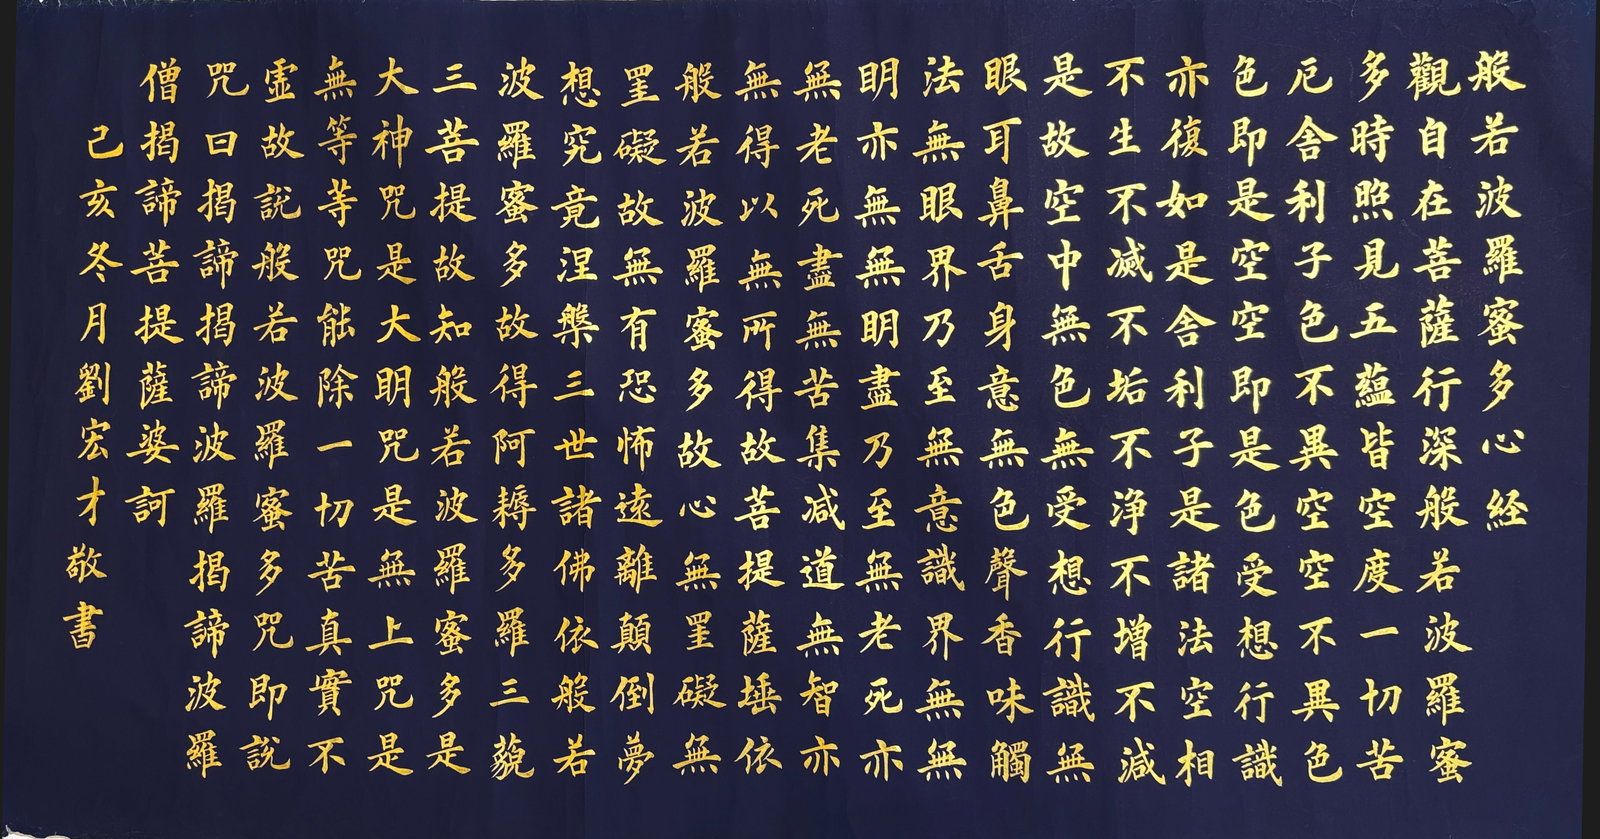 般若波羅蜜多心経
觀自在菩薩行深般若波羅蜜
多時照見五蘊皆空度一切苦
厄舎利子色不異空空不異色
色即是空空即是色受想行識
亦復如是舎利子是諸法空相
不生不滅不垢不浄不増不減
是故空中無色無受想行識無
眼耳鼻舌身意無色聲香味觸
法無眼界乃至無意識界無無
明亦無無明盡乃至無老死亦
無老死盡無苦集滅道無智亦
無得以無所得故菩提薩埵依
般若波羅蜜多故心無罣礙無
罣礙故無有恐怖遠離顛倒夢
想究竟涅槃三世諸佛依般若
波羅蜜多故得阿耨多羅三藐
三菩提故知般若波羅蜜多是
大神咒是大明咒是無上咒是
無等等咒能除一切苦真實不
虛故説般若波羅蜜多咒即説
咒曰揭諦揭諦波羅揭諦波羅
僧揭諦菩提薩婆訶
己亥冬月劉宏才敬書